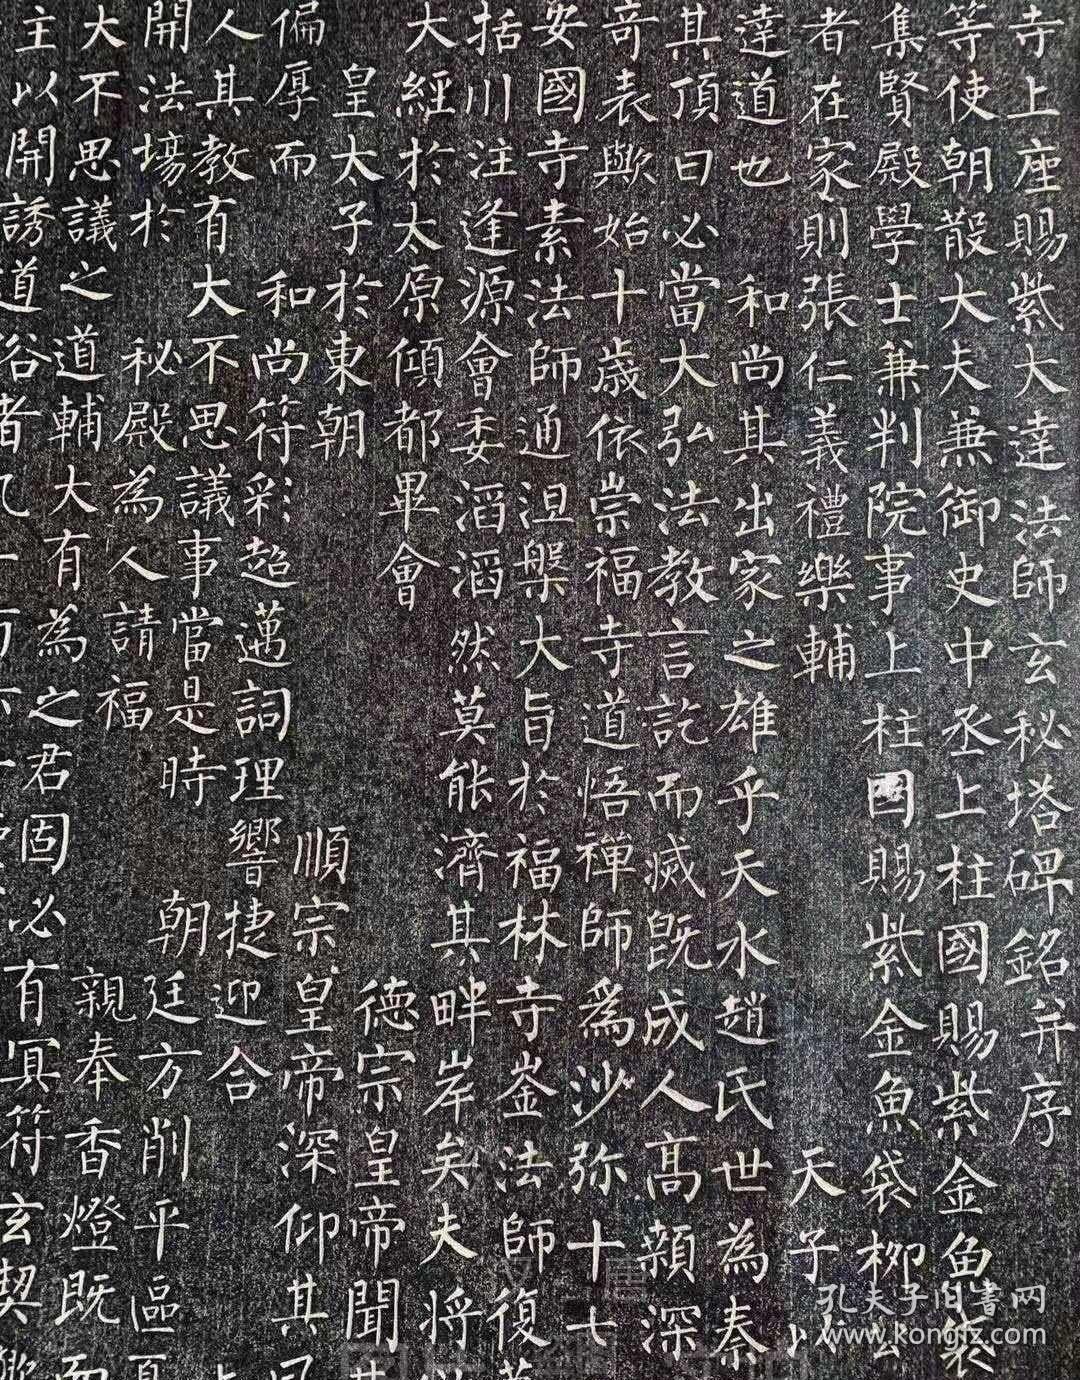 寺上座賜紫大達法師玄秘塔碑銘并序
等使朝散大夫兼御史中丞上柱國賜紫金魚袋
集賢殿學士兼判院事上柱國賜紫金魚袋柳公
者在家則張仁義禮樂輔 天子以
達道也 和尚其出家之雄乎天水趙氏世為秦
其頂曰必當大弘法教言訖而滅既成人高顙深
奇表歟始十歲依崇福寺道悟禪師為沙弥十七
安國寺素法師通涅槃大旨於福林寺崟法師復
括川注逢源會委滔滔然莫能濟其畔岸矣夫將
大經於太原傾都畢會
德宗皇帝聞其
皇太子於東朝
順宗皇帝深仰其風
偏厚而 和尚符彩超邁詞理響捷迎合
人其教有大不思議事當是時 朝廷方削平區夏
開法場於 秘殿為人請福 親奉香燈既而
大不思議之道輔大有為之君固必有冥符玄契歟
主以開誘道俗者凡一
孔夫子旧书网
www.kongfz.com